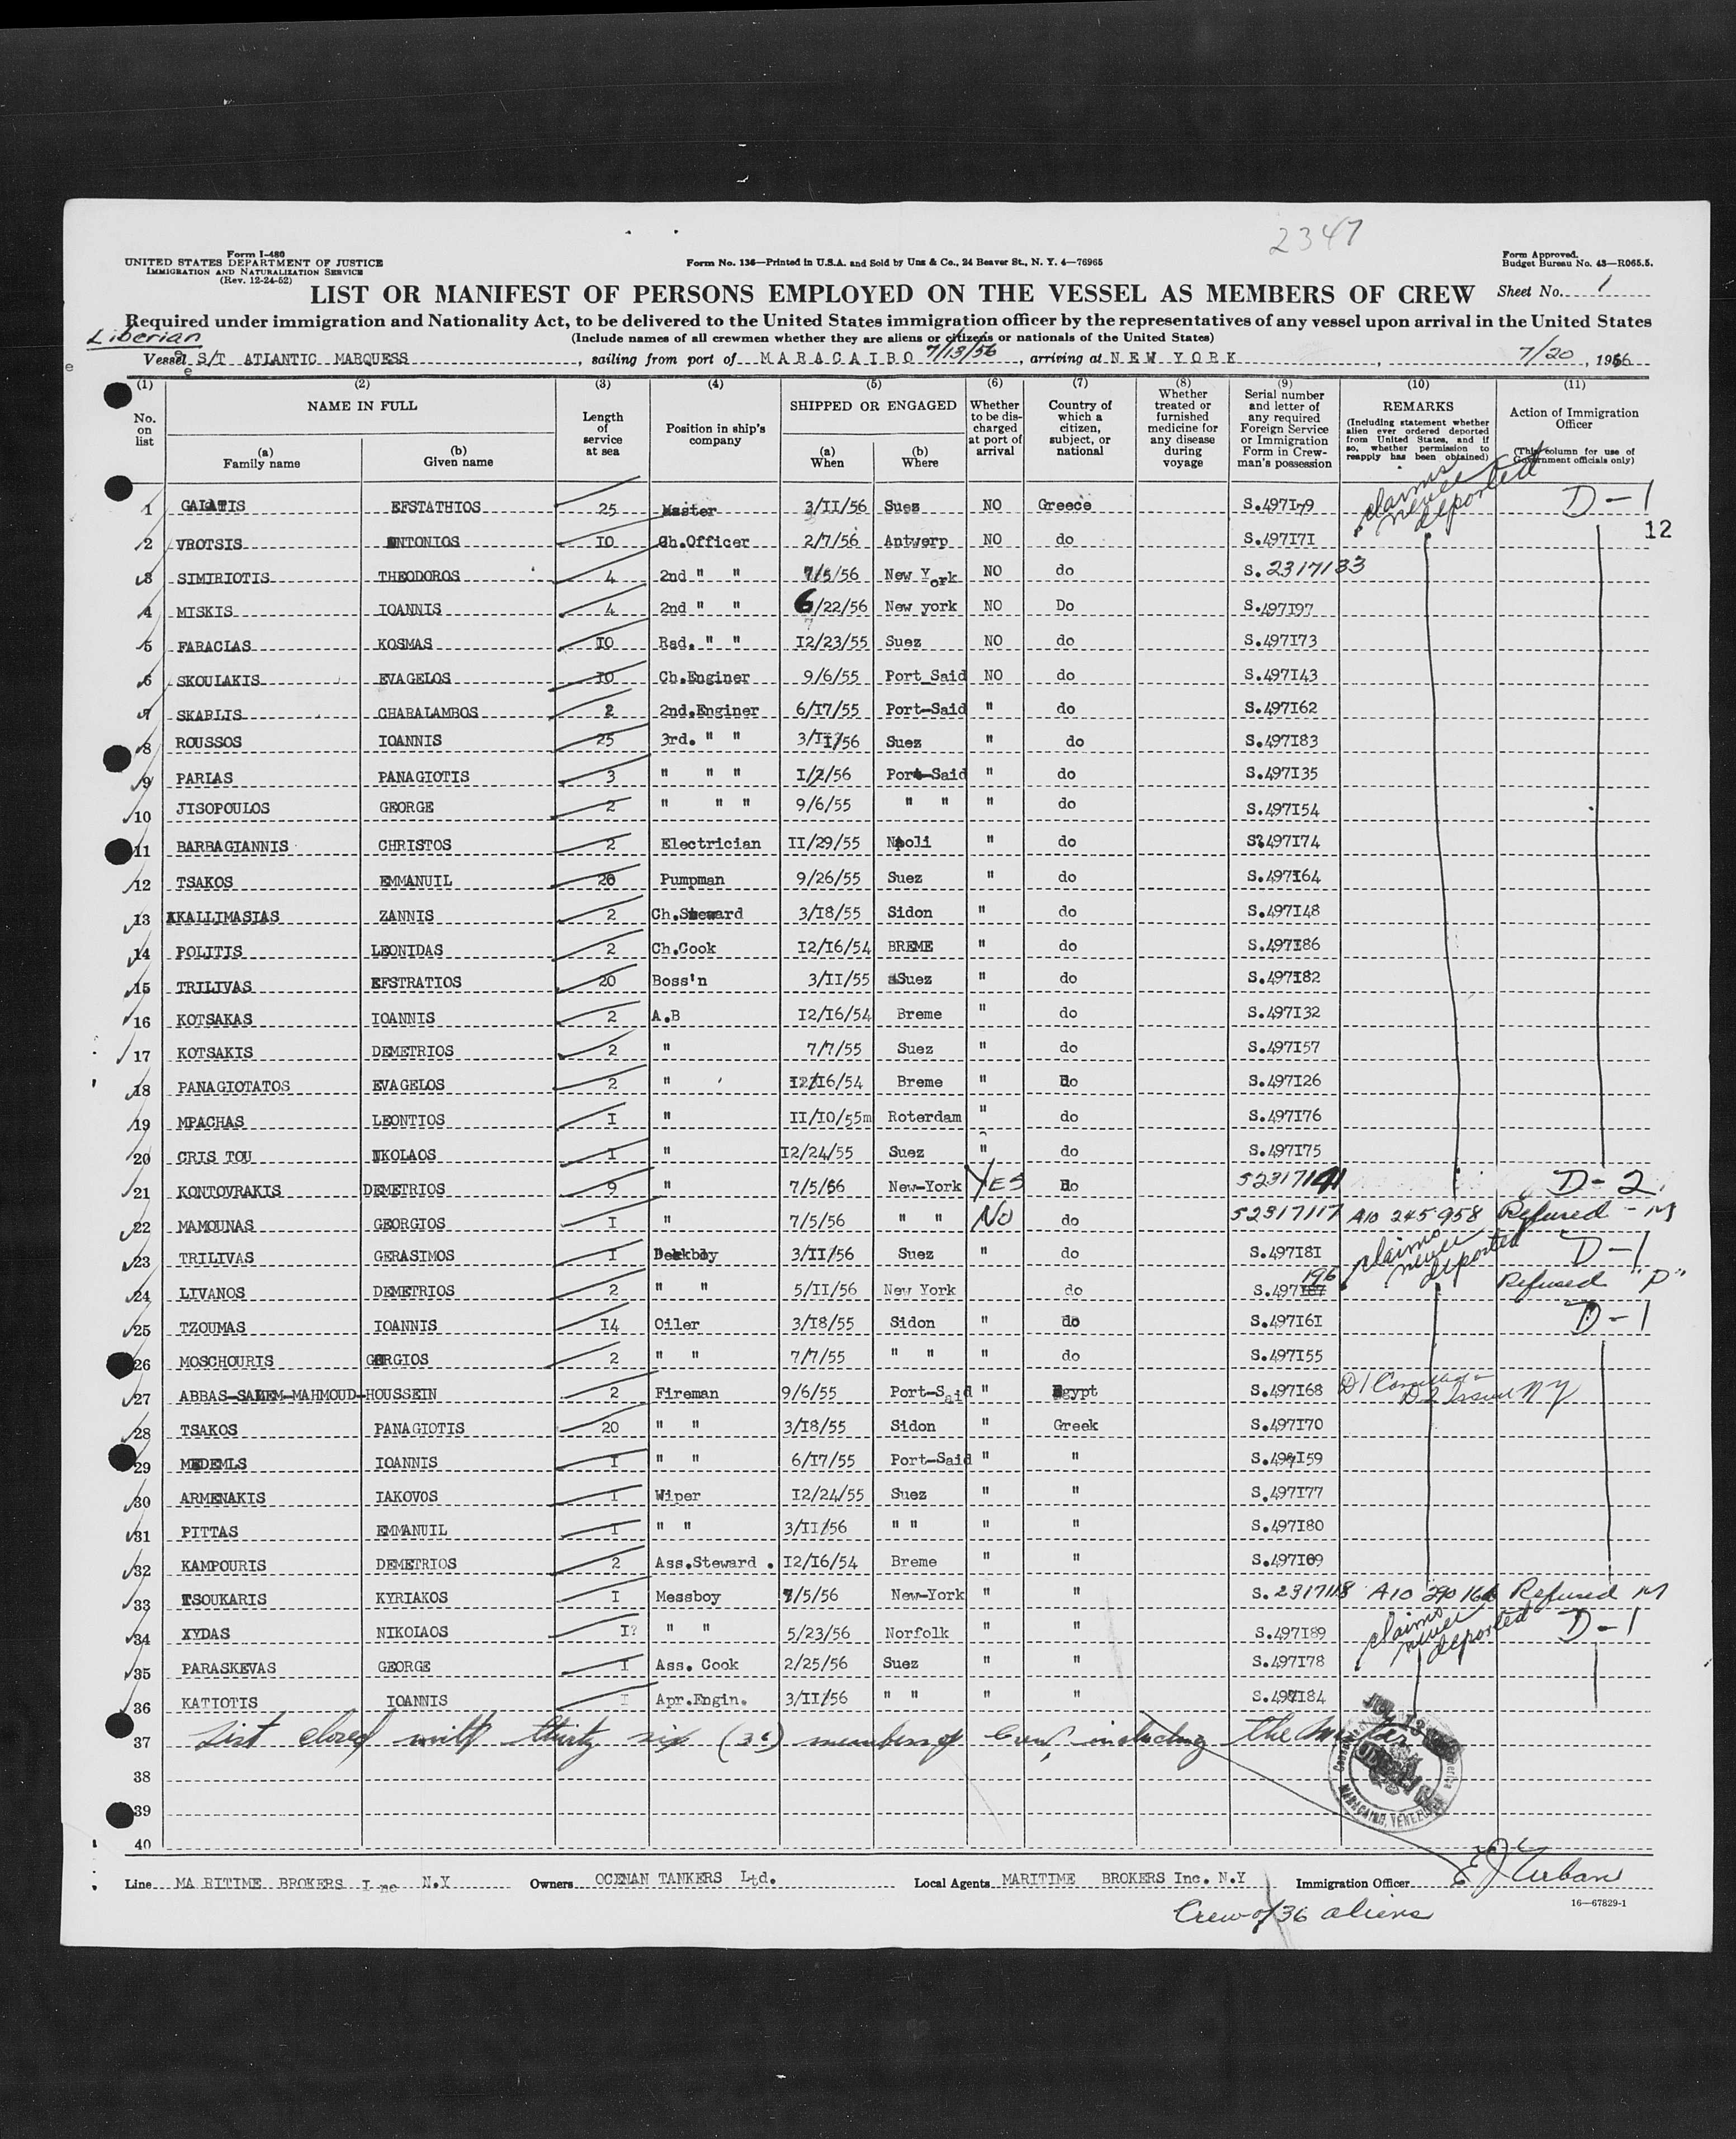 2347
Form I-480
UNITED STATES DEPARTMENT OF JUSTICE
IMMIGRATION AND NATURALIZATION SERVICE
(Rev. 12-24-52)
Form No. 136—Printed in U.S.A. and Sold by Unz & Co., 24 Beaver St., N. Y. 4—76965
Form Approved.
Budget Bureau No. 43—R065.5.
LIST OR MANIFEST OF PERSONS EMPLOYED ON THE VESSEL AS MEMBERS OF CREW Sheet No. 1
Required under immigration and Nationality Act, to be delivered to the United States immigration officer by the representatives of any vessel upon arrival in the United States
Liberian (Include names of all crewmen whether they are aliens or citizens or nationals of the United States)
Vessel S/T ATLANTIC MARQUESS, sailing from port of MARACAIBO 7/13/56, arriving at NEW YORK, 7/20, 1956
(1) (2) (3) (4) (5) (6) (7) (8) (9) (10) (11)
No. on list NAME IN FULL (a) Family name (b) Given name Length of service at sea Position in ship's company SHIPPED OR ENGAGED (a) When (b) Where Whether to be discharged at port of arrival Country of which a citizen, subject, or national Whether treated or furnished medicine for any disease during voyage Serial number and letter of any required Foreign Service or Immigration Form in Crewman's possession REMARKS (Including statement whether alien ever ordered deported from United States, and if so, whether permission to reapply has been obtained) Action of Immigration Officer (This column for use of Government officials only)
1 GALATIS EFSTATHIOS 25 Master 3/II/56 Suez NO Greece S.497I79 claims never deported D-1
12
2 VROTSIS ANTONIOS IO Ch.Officer 2/7/56 Antwerp NO do S.497I7I
3 SIMIRIOTIS THEODOROS 4 2nd " " 7/5/56 New York NO do S.2317133
4 MISKIS IOANNIS 4 2nd " " 6/22/56 New york NO Do S.497I97
5 FARACLAS KOSMAS IO Rad. " " I2/23/55 Suez NO do S.497I73
6 SKOULAKIS EVAGELOS IO Ch.Enginer 9/6/55 Port Said NO do S.497I43
7 SKARLIS CHARALAMBOS 2 2nd.Enginer 6/I7/55 Port-Said " do S.497I62
8 ROUSSOS IOANNIS 25 3rd. " " 3/II/56 Suez " do S.497I83
9 PARLAS PANAGIOTIS 3 " " " I/2/56 Port-Said " do S.497I35
10 JISOPOULOS GEORGE 2 " " " 9/6/55 " " " do S.497I54
11 BARBAGIANNIS CHRISTOS 2 Electrician II/29/55 Napoli " do S.497I74
12 TSAKOS EMMANUIL 20 Pumpman 9/26/55 Suez " do S.497I64
13 KALLIMASIAS ZANNIS 2 Ch.Steward 3/I8/55 Sidon " do S.497I48
14 POLITIS LEONIDAS 2 Ch.Cook I2/I6/54 BREME " do S.497I86
15 TRILIVAS EFSTRATIOS 20 Boss'n 3/II/55 Suez " do S.497I82
16 KOTSAKAS IOANNIS 2 A.B I2/I6/54 Breme " do S.497I32
17 KOTSAKIS DEMETRIOS 2 " 7/7/55 Suez " do S.497I57
18 PANAGIOTATOS EVAGELOS 2 " I2/I6/54 Breme " Do S.497I26
19 MPACHAS LEONTIOS I " II/I0/55m Roterdam " do S.497I76
20 CRIS TOU NKOLAOS I " I2/24/55 Suez " do S.497I75
21 KONTOVRAKIS DEMETRIOS 9 " 7/5/56 New-York YES Do S2317141 D-2
22 MAMOUNAS GEORGIOS I " 7/5/56 " " NO do S2317117 A10 245 958 Refused - M
23 TRILIVAS GERASIMOS I Deckboy 3/II/56 Suez " do S.497I8I claims never deported D-1
24 LIVANOS DEMETRIOS 2 " " 5/II/56 New York do S.497196 Refused "P"
25 TZOUMAS IOANNIS I4 Oiler 3/I8/55 Sidon " do S.497I6I D-1
26 MOSCHOURIS GERGIOS 2 " " 7/7/55 " " " do S.497I55
27 ABBAS-SALEM-MAHMOUD-HOUSSEIN 2 Fireman 9/6/55 Port-Said " Egypt S.497I68 D1 Cancelled - D2 Issued NY
28 TSAKOS PANAGIOTIS 20 " " 3/I8/55 Sidon " Greek S.497I70
29 MEDEMLS IOANNIS I " " 6/I7/55 Port-Said " " S.497I59
30 ARMENAKIS IAKOVOS I Wiper I2/24/55 Suez " " S.497I77
31 PITTAS EMMANUIL I " " 3/II/56 " " " " S.497I80
32 KAMPOURIS DEMETRIOS 2 Ass.Steward . I2/I6/54 Breme " " S.497I09
33 TSOUKARIS KYRIAKOS I Messboy 7/5/56 New-York " " S.2317118 A10 290 166 Refused M
34 XYDAS NIKOLAOS I? " " 5/23/56 Norfolk " " S.497I89 claims never deported D-1
35 PARASKEVAS GEORGE I Ass. Cook 2/25/56 Suez " " S.497I78
36 KATIOTIS IOANNIS I Apr.Engin. 3/II/56 " " " " S.497I84
37 List closed with thirty six (36) members of Crew, including the Master
38
39
40
MARACAIBO, VENEZUELA
Line MARITIME BROKERS Inc N.Y Owners OCEMAN TANKERS Ltd. Local Agents MARITIME BROKERS Inc. N.Y Immigration Officer E J Urban
16—67829-1
Crew of 36 aliens